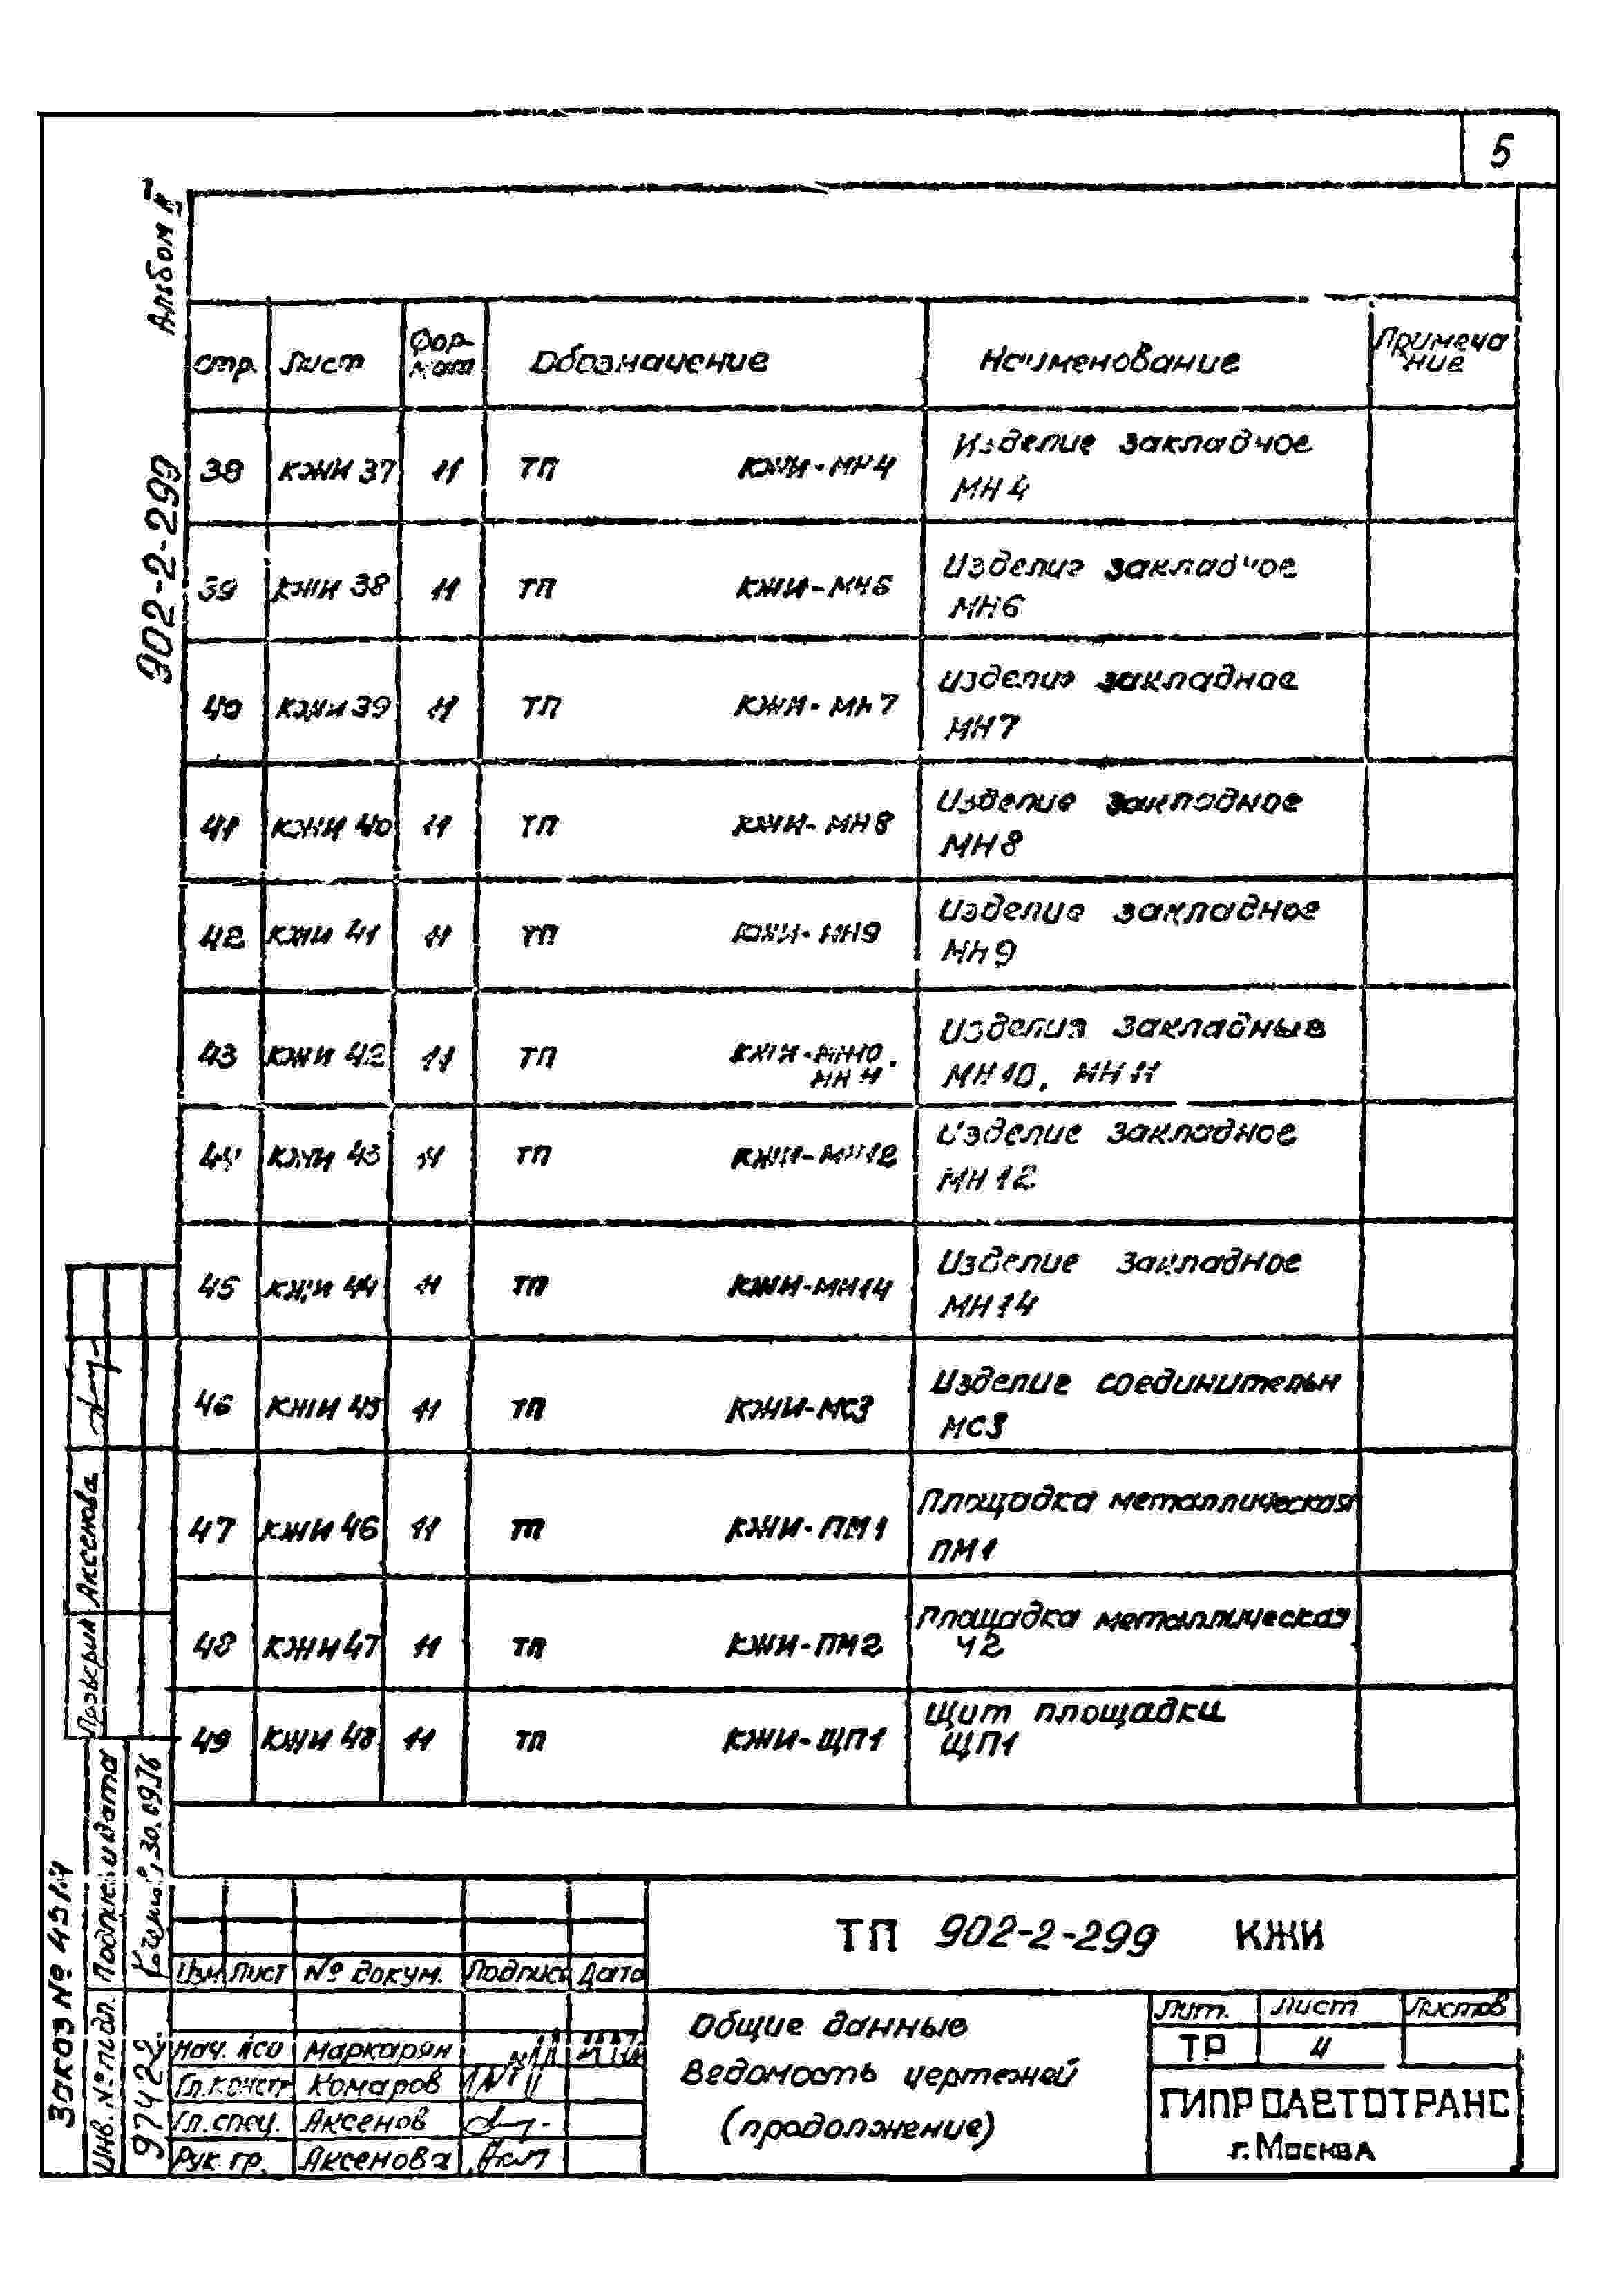 5
Альбом
902-2-299
стр. Лист Фор-мат Обозначение Наименование Примечание
38 КЖИ 37 11 ТП КЖИ-МН4 Изделие закладное
МН4
39 КЖИ 38 11 ТП КЖИ-МН6 Изделие закладное
МН6
40 КЖИ 39 11 ТП КЖИ-МН7 Изделие закладное
МН7
41 КЖИ 40 11 ТП КЖИ-МН8 Изделие закладное
МН8
42 КЖИ 41 11 ТП КЖИ-МН9 Изделие закладное
МН9
43 КЖИ 42 11 ТП КЖИ-МН10, Изделия закладные
МН11 МН10, МН11
44 КЖИ 43 11 ТП КЖИ-МН12 Изделие закладное
МН12
45 КЖИ 44 11 ТП КЖИ-МН14 Изделие закладное
МН14
46 КЖИ 45 11 ТП КЖИ-МС3 Изделие соединительн
МС3
47 КЖИ 46 11 ТП КЖИ-ПМ1 Площадка металлическая
ПМ1
48 КЖИ 47 11 ТП КЖИ-ПМ2 Площадка металлическая
Ч2
49 КЖИ 48 11 ТП КЖИ-ЩП1 Щит площадки
ЩП1
Проверил Аксенова
Подпись и дата
30.09.76
Инв. № подл.
97422
Заказ №
Изм Лист № докум. Подпись Дата
Нач. Маркарян
Гл.конст Комаров
Гл.спец. Аксенов
Рук. гр. Аксенова
ТП 902-2-299 КЖИ
Общие данные
Ведомость чертежей
(продолжение)
Лит. Лист Листов
ТР 4
ГИПРОАВТОТРАНС
г. Москва